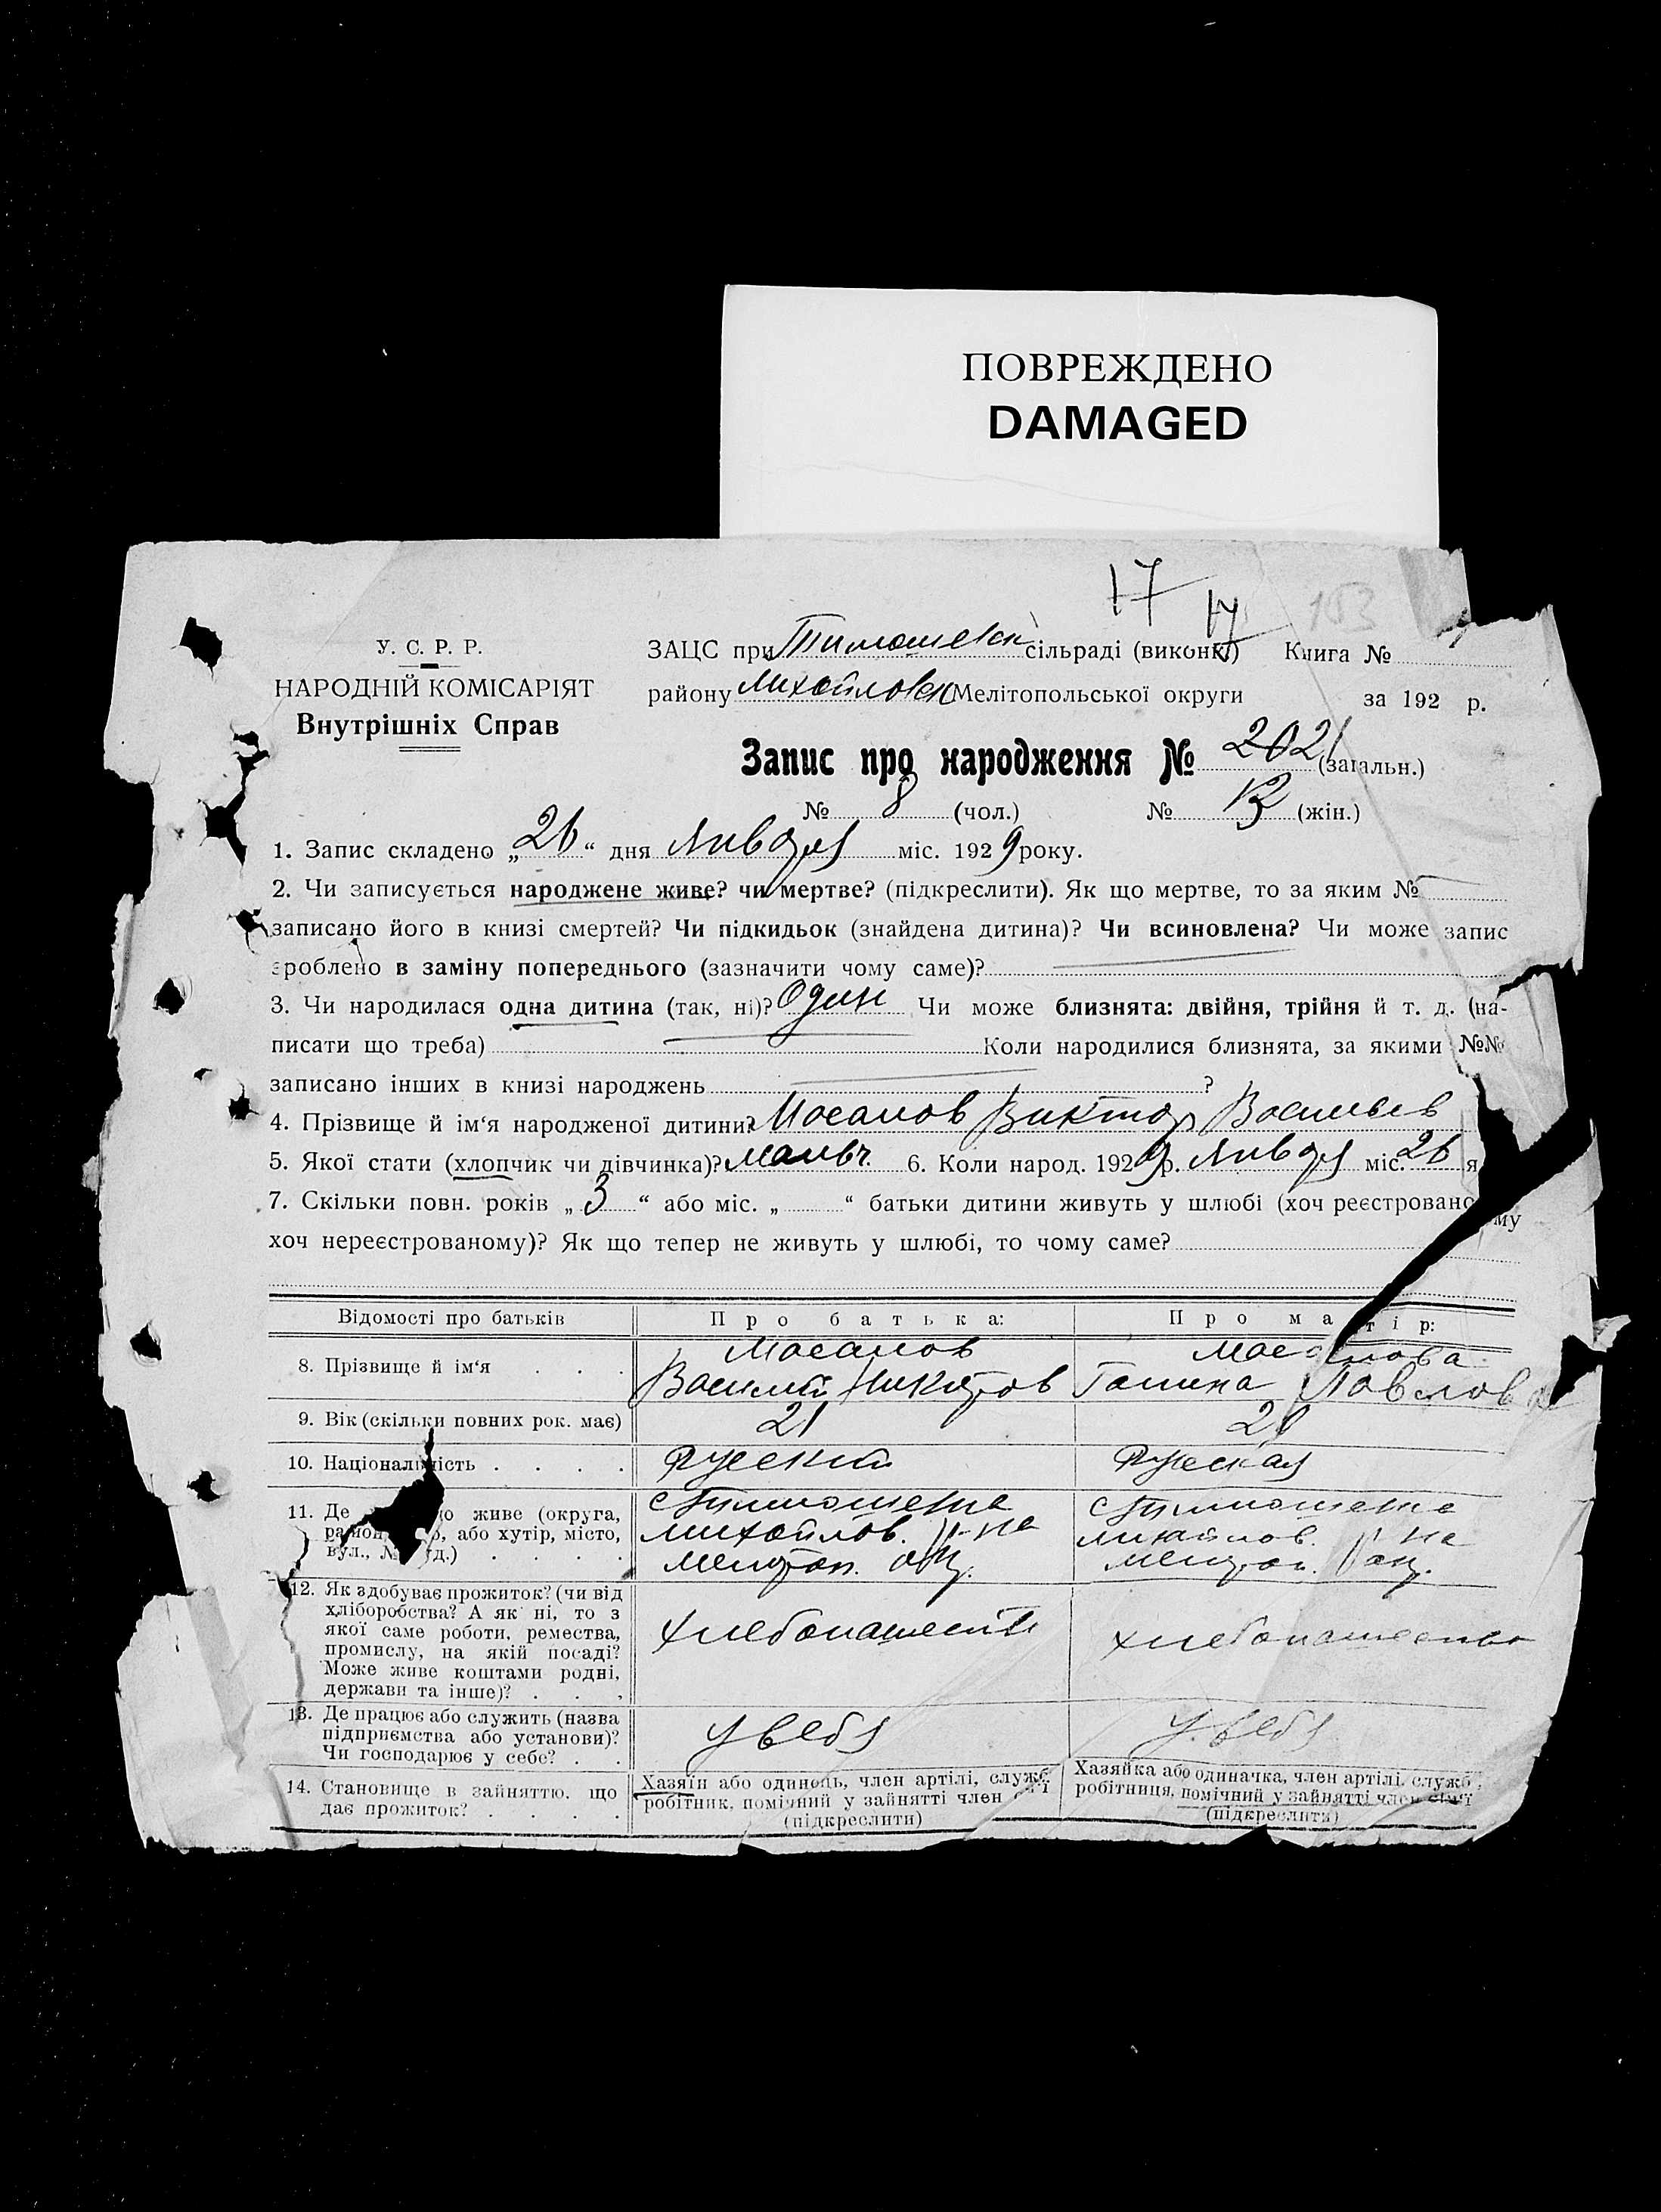 ПОВРЕЖДЕНО
DAMAGED
17
17
183
У. С. Р. Р.
НАРОДНІЙ КОМІСАРІЯТ
Внутрішніх Справ
ЗАЦС при Тимошевск сільраді (виконк.) Книга №
району Михайловск Мелітопольської округи за 192 р.
Запис про народження № (загальн.)
№ 8 (чол.) № (жін.)
1. Запис складено „26“ дня Января міс. 1929 року.
2. Чи записується народжене живе? чи мертве? (підкреслити). Як що мертве, то за яким №
записано його в книзі смертей? Чи підкидьок (знайдена дитина)? Чи всиновлена? Чи може запис
зроблено в заміну попереднього (зазначити чому саме)?
3. Чи народилася одна дитина (так, ні)? Один Чи може близнята: двійня, трійня й т. д. (на-
писати що треба) Коли народилися близнята, за якими №№
записано інших в книзі народжень ?
4. Прізвище й ім‘я народженої дитини? Мосалов Виктор Васильев
5. Якої стати (хлопчик чи дівчинка)? мальч. 6. Коли народ. 1929 р. Января міс. 26 я
7. Скільки повн. років „3“ або міс. „ “ батьки дитини живуть у шлюбі (хоч реєстрованому
хоч нереєстрованому)? Як що тепер не живуть у шлюбі, то чому саме?
Відомості про батьків Про батька: Про матір:
8. Прізвище й ім‘я . . . Мосалов Мосалова
Василий Никитов Галина Павлова
9. Вік (скільки повних рок. має) 21
10. Національність . . . . Русский Русская
11. Де живе (округа, с Тимошевка с Тимошевка
район, або хутір, місто, михайлов. р-на михайлов. р-на
вул., № буд.) . . . . мелитоп. окр. мелитоп. окр.
12. Як здобуває прожиток? (чи від
хліборобства? А як ні, то з
якої саме роботи, ремества, хлебопашеств хлебопашество
промислу, на якій посаді?
Може живе коштами родні,
держави та інше)? . . .
13. Де працює або служить (назва
підприємства або установи)? У себя У себя
Чи господарює у себе? . .
14. Становище в зайняттю, що Хазяїн або одинець, член артілі, служб. Хазяйка або одиначка, член артілі, служб.,
дає прожиток? . . . . робітник, помічний у зайнятті член сім‘ї робітниця, помічний у зайнятті член сім‘ї
(підкреслити) (підкреслити)